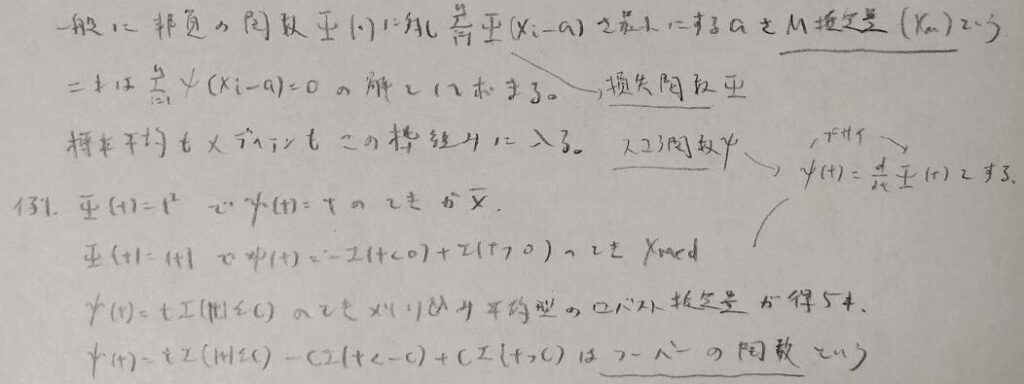 一般に 非負の関数 Ψ(・)に対し Σ_{i=1}^{n} Ψ(Xi-a) を最小にする a を M推定量 (Xm)という
これは Σ_{i=1}^{n} ψ(Xi-a)=0 の解として求まる。 → 損失関数 Ψ
標本平均も メディアンも この枠組みに入る。 スコア関数 ψ
プサイ
ψ(t) = d/dt Ψ(t) とする.
例. Ψ(t)=t² で ψ(t)=t のときが X̄.
Ψ(t)=|t| で ψ(t)=-I(t<0)+I(t>0) のとき Xmed
ψ(t)=tI(|t|≤c) のとき 刈り込み 平均型の ロバスト 推定量 が得られ.
ψ(t)=tI(|t|≤c) -cI(t<-c)+cI(t>c) は フーバーの関数 という